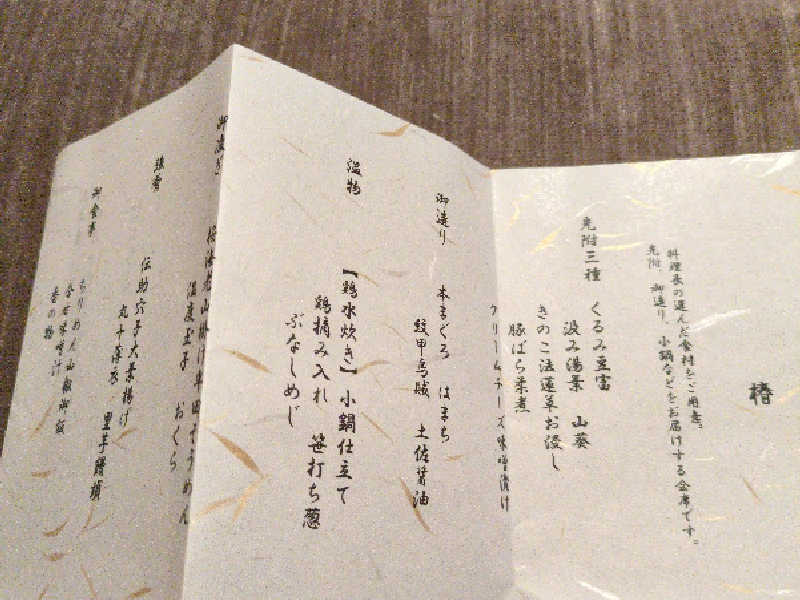 椿
料理長の選んだ食材をご用意。
先附、御造り、小鍋などをお届けする会席です。
先附三種 くるみ豆富
汲み湯葉 山葵
きのこ法蓮草お浸し
豚ばら柔煮
クリームチーズ味噌漬け
御造り 本まぐろ はまち
紋甲烏賊 土佐醤油
温物 【鶏水炊き】小鍋仕立て
鶏摘み入れ 笹打ち葱
ぶなしめじ
御凌ぎ 山掛け半田そうめん
温度玉子 おくら
強肴 伝助穴子大葉揚げ
丸十 里芋饅頭
御食事 ちりめん山椒御飯
合せ味噌汁
香の物